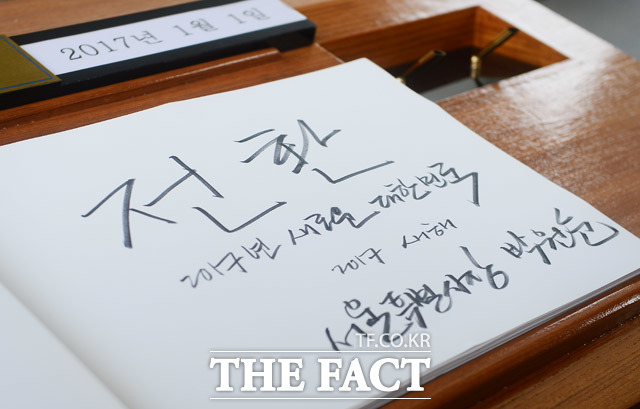 2017년 1월 1일
전환
2017년 새로운 대한민국
2017 새해
서울특별시장 박원순
TF.CO.KR
THE FACT